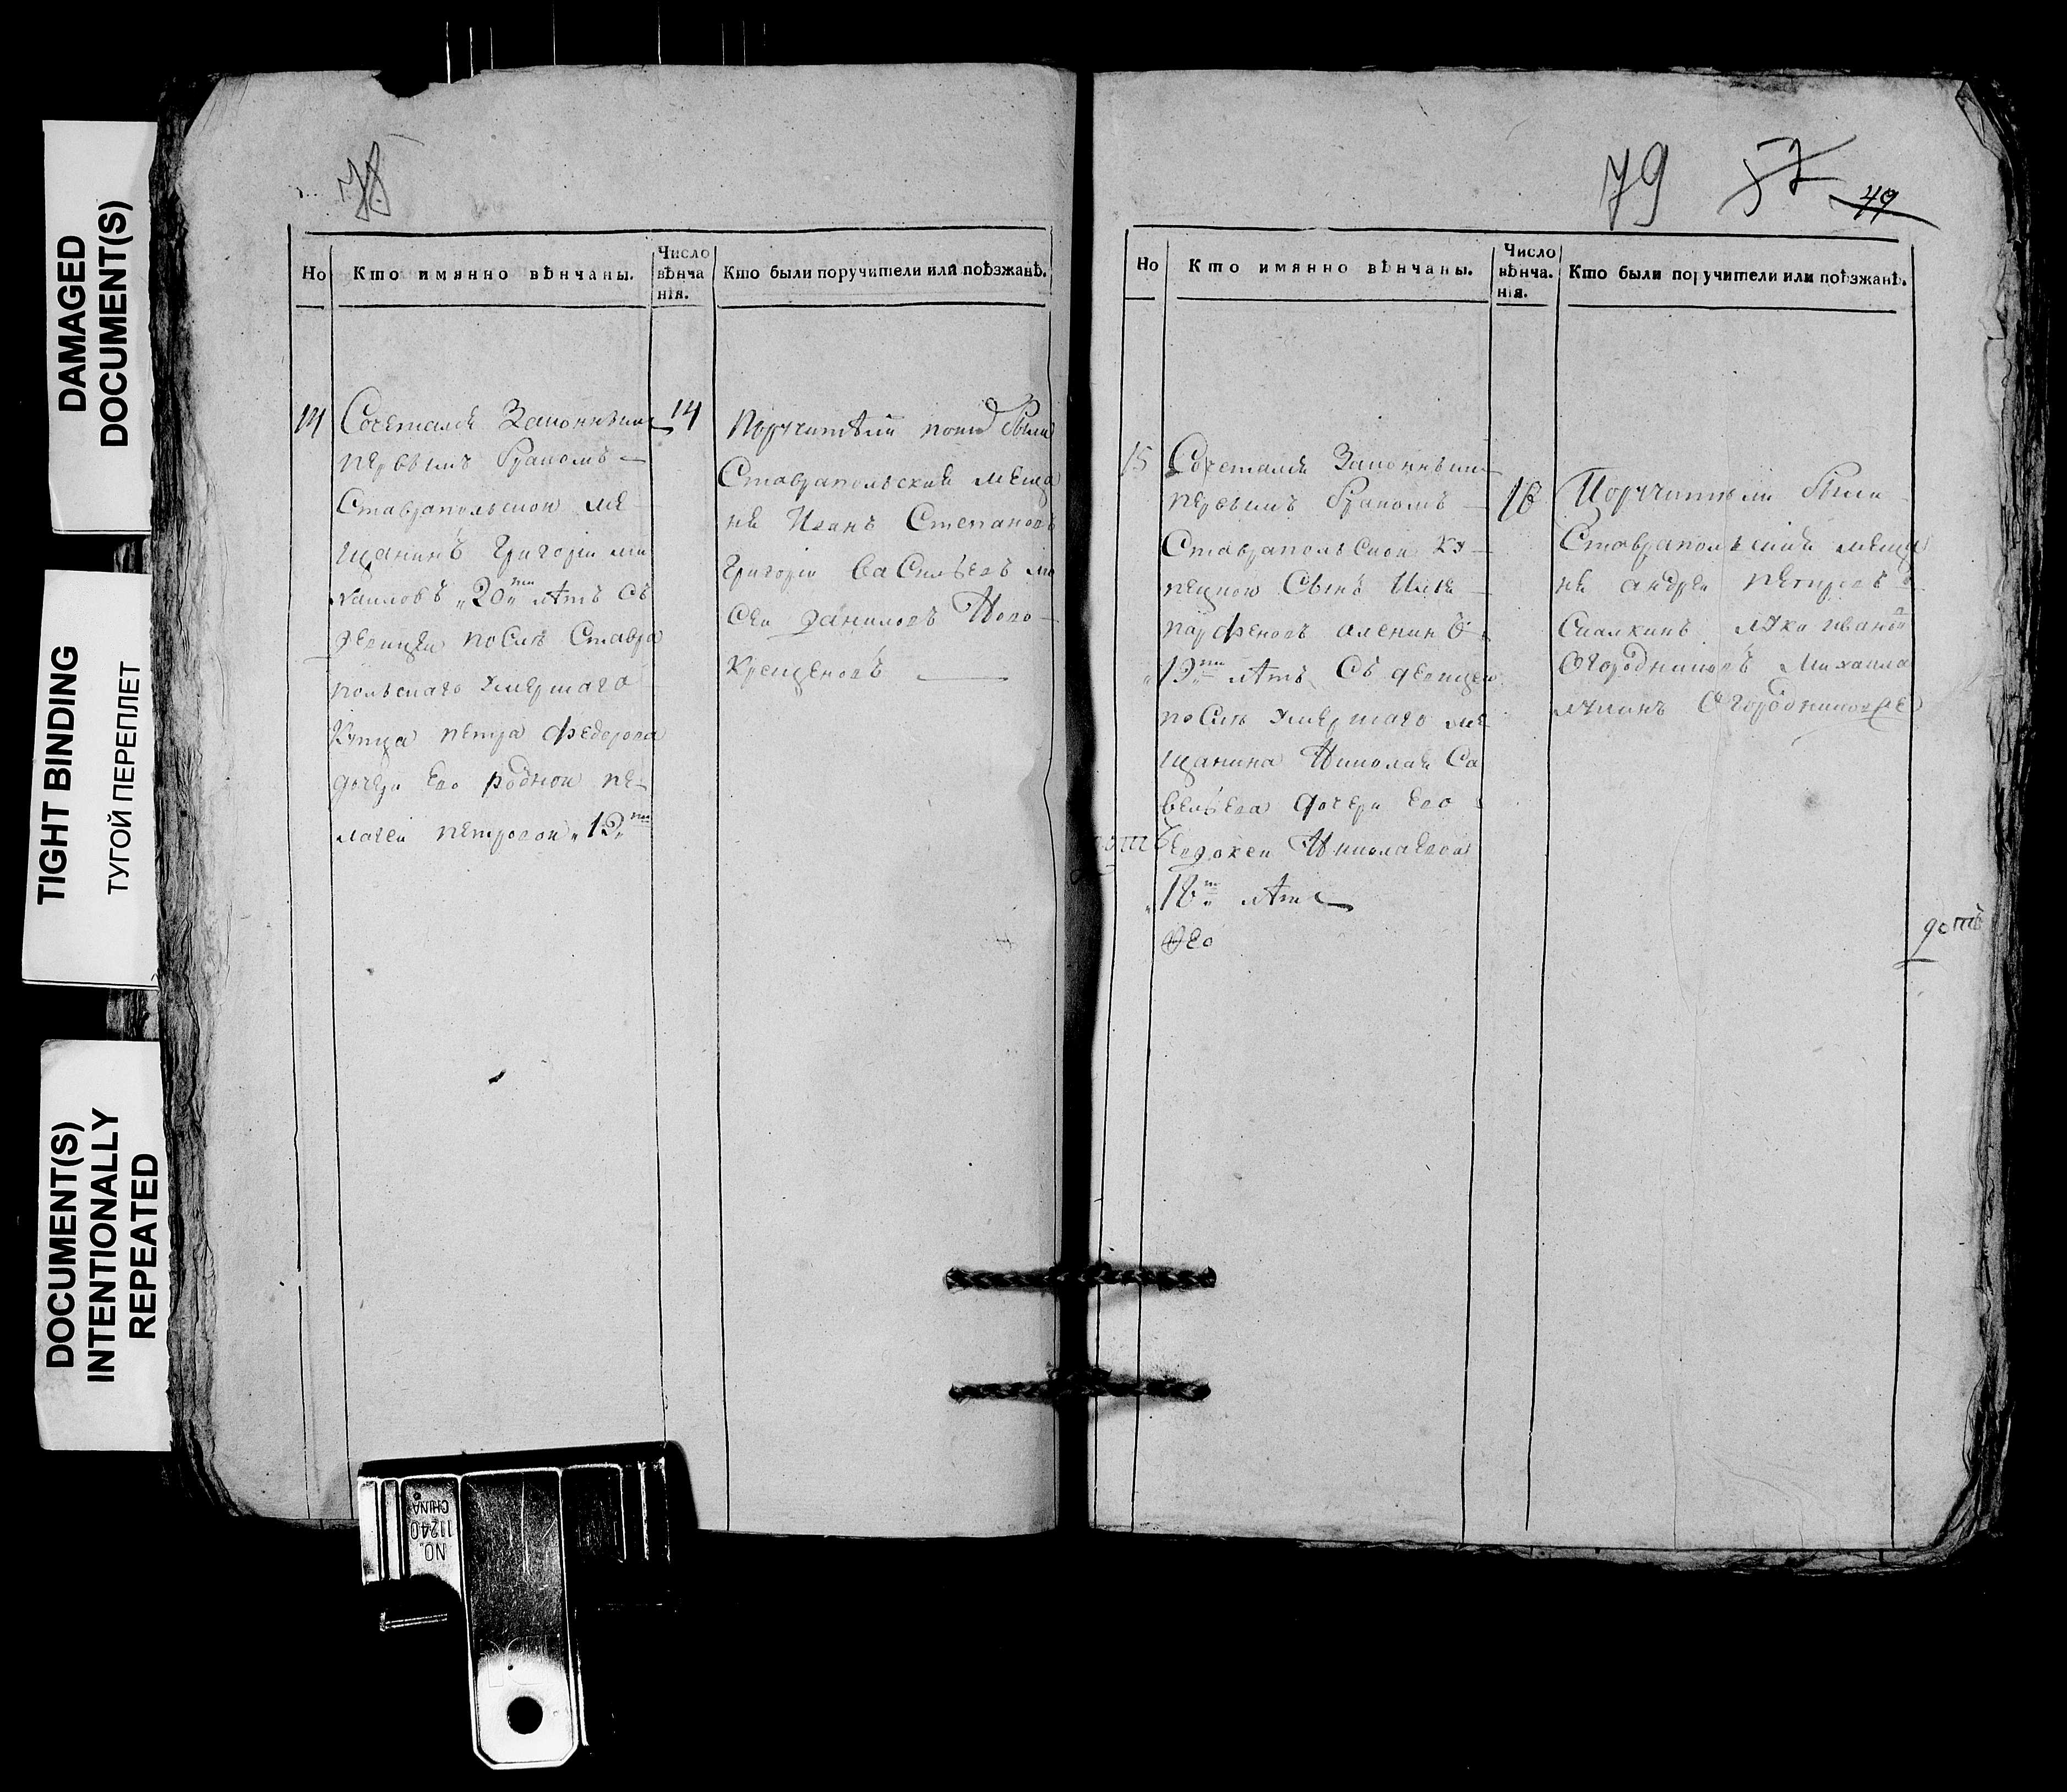 DAMAGED
DOCUMENT(S)
TIGHT BINDING
ТУГОЙ ПЕРЕПЛЕТ
DOCUMENT(S)
INTENTIONALLY
REPEATED
78
Но
Кто имянно вѣнчаны.
Число
вѣнча
нія.
Кто были поручители или поѣзжанѣ.
14
Сочетался Законнымъ
первымъ бракомъ
Ставрапольской ме
щанинъ Григори ми
хаиловъ 20ти лѣтъ съ
девицеи после Ставра
польскаго умершаго
Купца петра федорова
дочери ево родной пе
лагеи петровои 19ти
14
поручители по были
Ставрапольския меща
не Иванъ Степановъ
Григори Васильевъ
сеи данилов Ново
крещеновъ
79 57 49
Но
Кто имянно вѣнчаны.
Число
вѣнча.
нія.
Кто были поручители или поѣзжанѣ.
15
Сочетался Законнымъ
первымъ бракомъ
Ставрапольской ку
пецкой Сынъ
парфеновъ
19ти лѣтъ Съ девицею
после умершаго ме
щанина Николая Са
вельева дочери ево
Евдокеи Николаевои
18ти лѣтъ
16
Поручители были
Ставрапольския меща
не андреи петровъ
лука иванов
Огородниковъ Михаила
Огородниковы
NO.
11240
CHINA